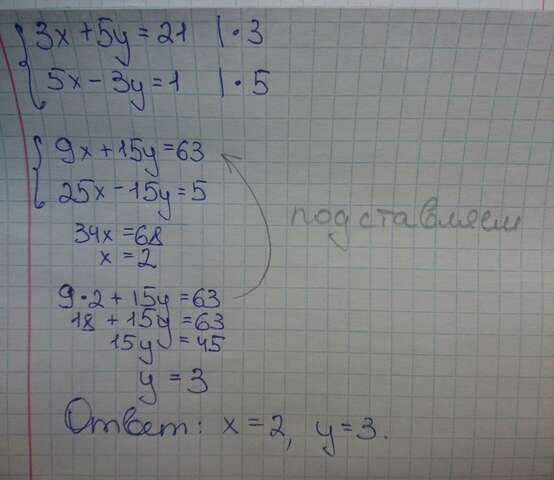 3x + 5y = 21 | · 3
5x − 3y = 1 | · 5
9x + 15y = 63
25x − 15y = 5
подставляем
34x = 68
x = 2
9 · 2 + 15y = 63
18 + 15y = 63
15y = 45
y = 3
Ответ: x = 2, y = 3.